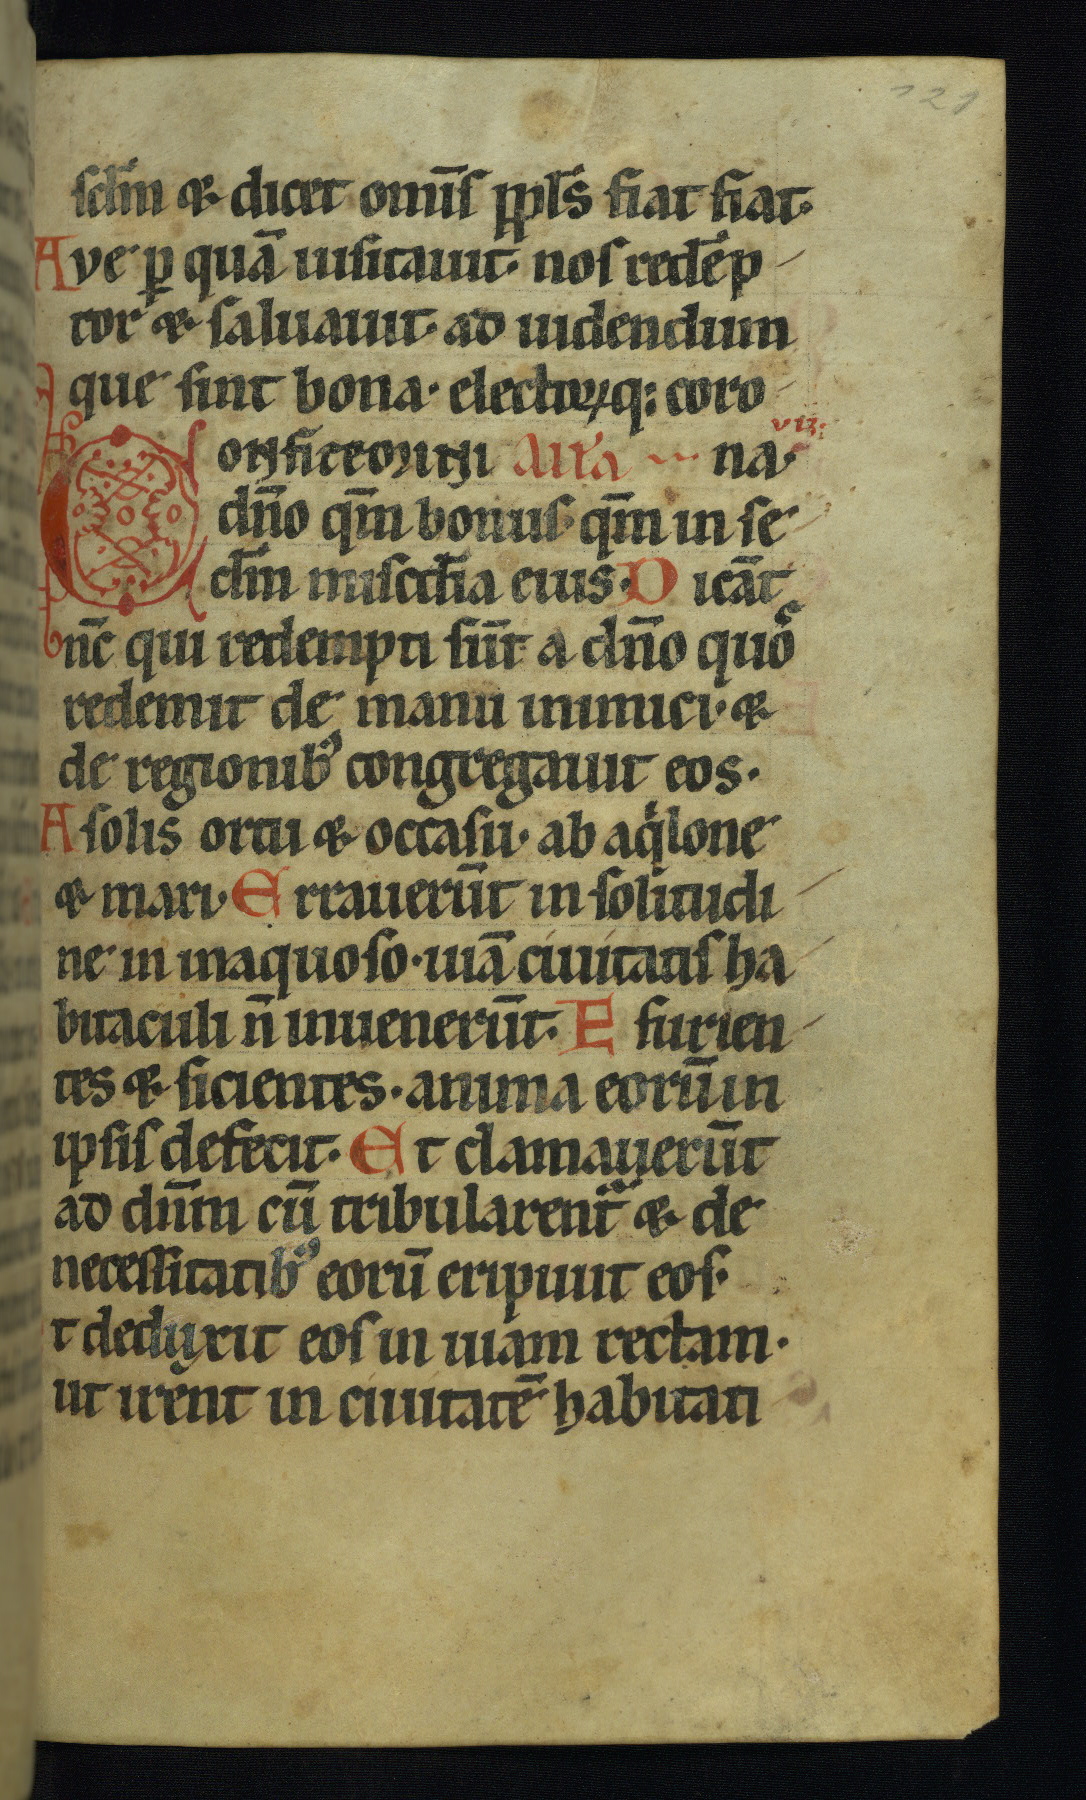 121
sclm̄ & dicet omīs pp̄ls fiat fiat·
Ave p̱ quā uisitauit· nos redēp
tor & saluauit· ad uidendum
que sint bona· electoꝝq; coro
Onfitemini Alľa na· vii:
dn̄o qm̄ bonus· qm̄ in se
clm̄ misc̄dia eius· Dicāt
nc̄ qui redempti sūt a dn̄o quoꝰ
redemit de manu inimici· &
de regionibꝰ congregauit eos·
A solis ortu & occasu· ab aqͥlone
& mari· Errauerūt in solitudi
ne in inaquoso· uiā ciuitatis ha
bitaculi n̄ inuenerūt· Esurien
tes & sicientes· anima eorū in
ipsis defecit· Et clamauerūt
ad dn̄m cū tribularent̃ & de
necessitatibꝰ eorū eripuit eos·
t deduxit eos in uiam rectam·
ut irent in ciuitatē habitati